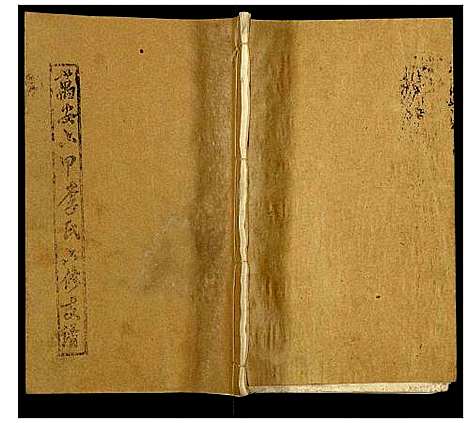 萬安六甲李氏六修支譜